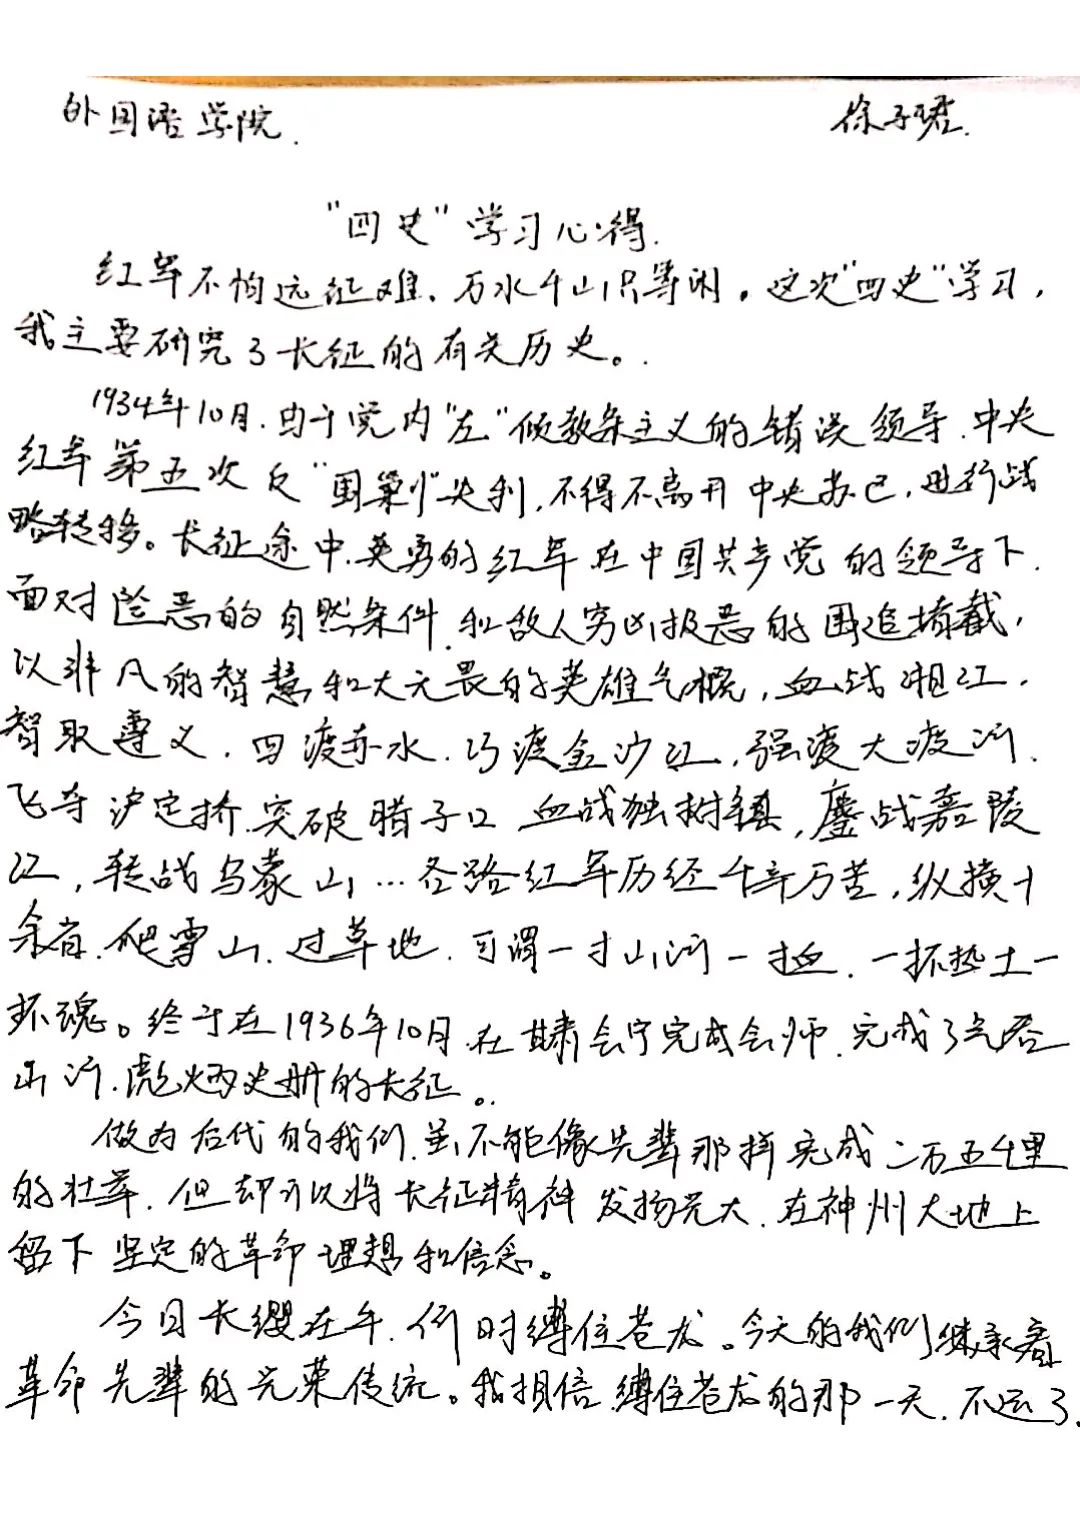 外国语学院. 徐子珺.
"四史"学习心得.
红军不怕远征难,万水千山只等闲。这次"四史"学习,
我主要研究了长征的有关历史。
1934年10月,由于党内"左"倾教条主义的错误领导,中央
红军第五次反"围剿"失利,不得不离开中央苏区,进行战
略转移。长征途中,英勇的红军在中国共产党的领导下,
面对险恶的自然条件和敌人穷凶极恶的围追堵截,
以非凡的智慧和大无畏的英雄气概,血战湘江,
智取遵义,四渡赤水,巧渡金沙江,强渡大渡河,
飞夺泸定桥,突破腊子口 血战独树镇,鏖战嘉陵
江,转战乌蒙山…各路红军历经千辛万苦,纵横十
余省,爬雪山,过草地,可谓一寸山河一寸血,一抔热土一
抔魂。终于在1936年10月,在甘肃会宁完成会师,完成了气吞
山河,彪炳史册的长征。
做为后代的我们,虽不能像先辈那样完成二万五千里
的壮举,但却可以将长征精神发扬光大,在神州大地上
留下坚定的革命理想和信念。
今日长缨在手,何时缚住苍龙。今天的我们继承着
革命先辈的光荣传统。我相信,缚住苍龙的那一天,不远了.